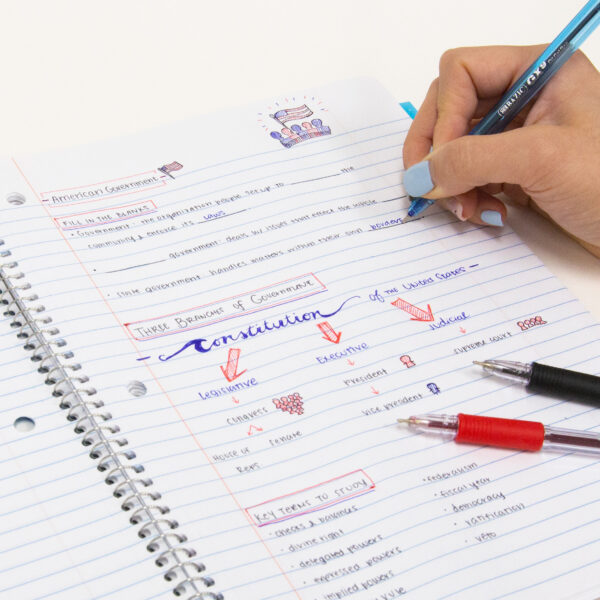 American Government
FILL IN THE BLANKS
• Government: the organization people set up to ______ the
community & enforce its laws
• ______ government: deals w/ issues that affect the whole
• State government: handles matters within their own borders
THREE BRANCHES OF GOVERNMENT
Constitution of the United States
Legislative Executive Judicial
congress President supreme court
House of Reps Senate Vice president
KEY TERMS TO STUDY
• checks & balances
• divine right
• delegated powers
• expressed powers
• implied powers
• federalism
• fiscal year
• democracy
• ratification
• veto
BRAZIG GX9